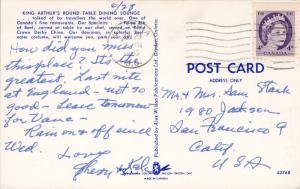 KING ARTHUR'S ROUND TABLE DINING LOUNGE
talked of by travellers the world over. One of
Canada's fine restaurants. Our Specialty - prime Rib
of Beef, carved at your table, served on Blue
Crown Derby China. Our doorman, in colorful beef
eater costume, will welcome you, park your car.
6/29
How did you miss
this place? It's the
greatest. Last nite
at England - not so
good - Leave tomorrow
for Vanc.
Rain on & off since
Wed.
Love
Sherry &
Published by Alex Wilson Publications Ltd., Dryden-Ontario
CANADA
4¢
POST CARD
ADDRESS ONLY
Mr & Mrs. Sam Stark
1980 Jackson
San Francisco 9
Calif.
USA
MADE IN CANADA
42768